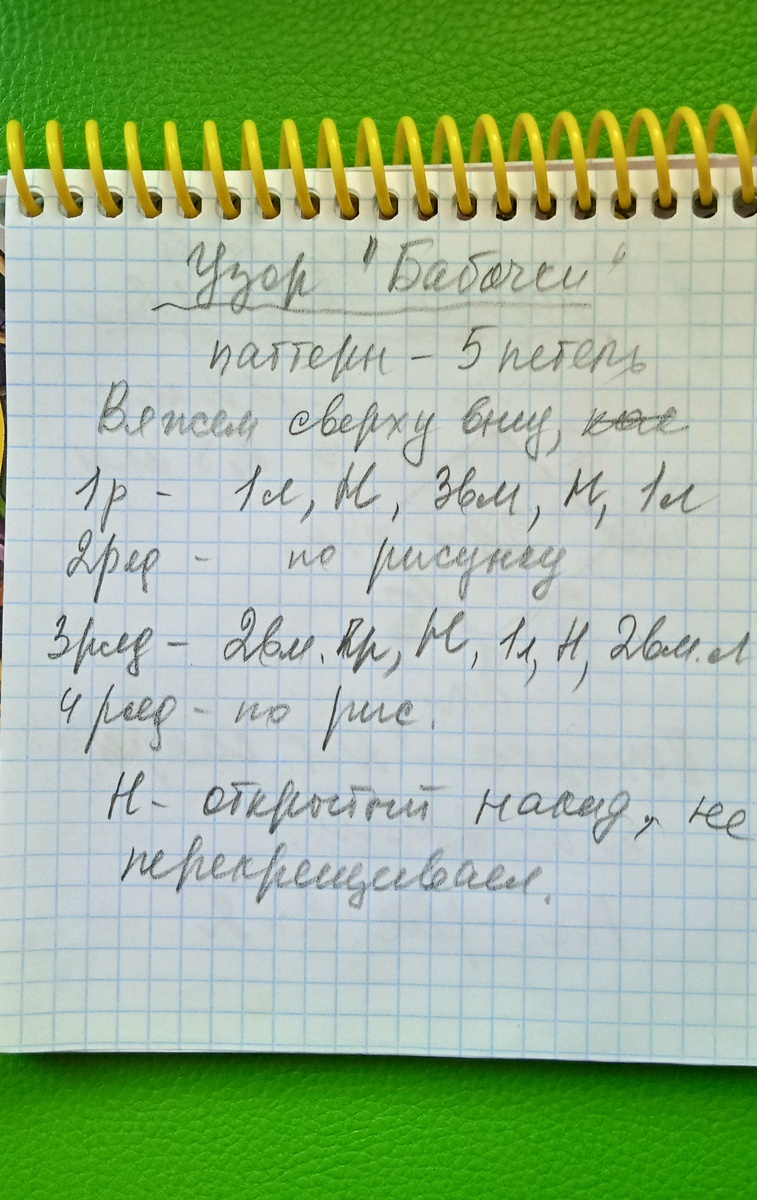 Узор "Бабочки"
паттерн - 5 петель
Вяжем сверху вниз,
1р - 1л, Н, 3вм, Н, 1л
2ряд - по рисунку
3ряд - 2вм. пр, Н, 1л, Н, 2вм. л
4 ряд - по рис.
Н - открытый накид, не
перекрещиваем.